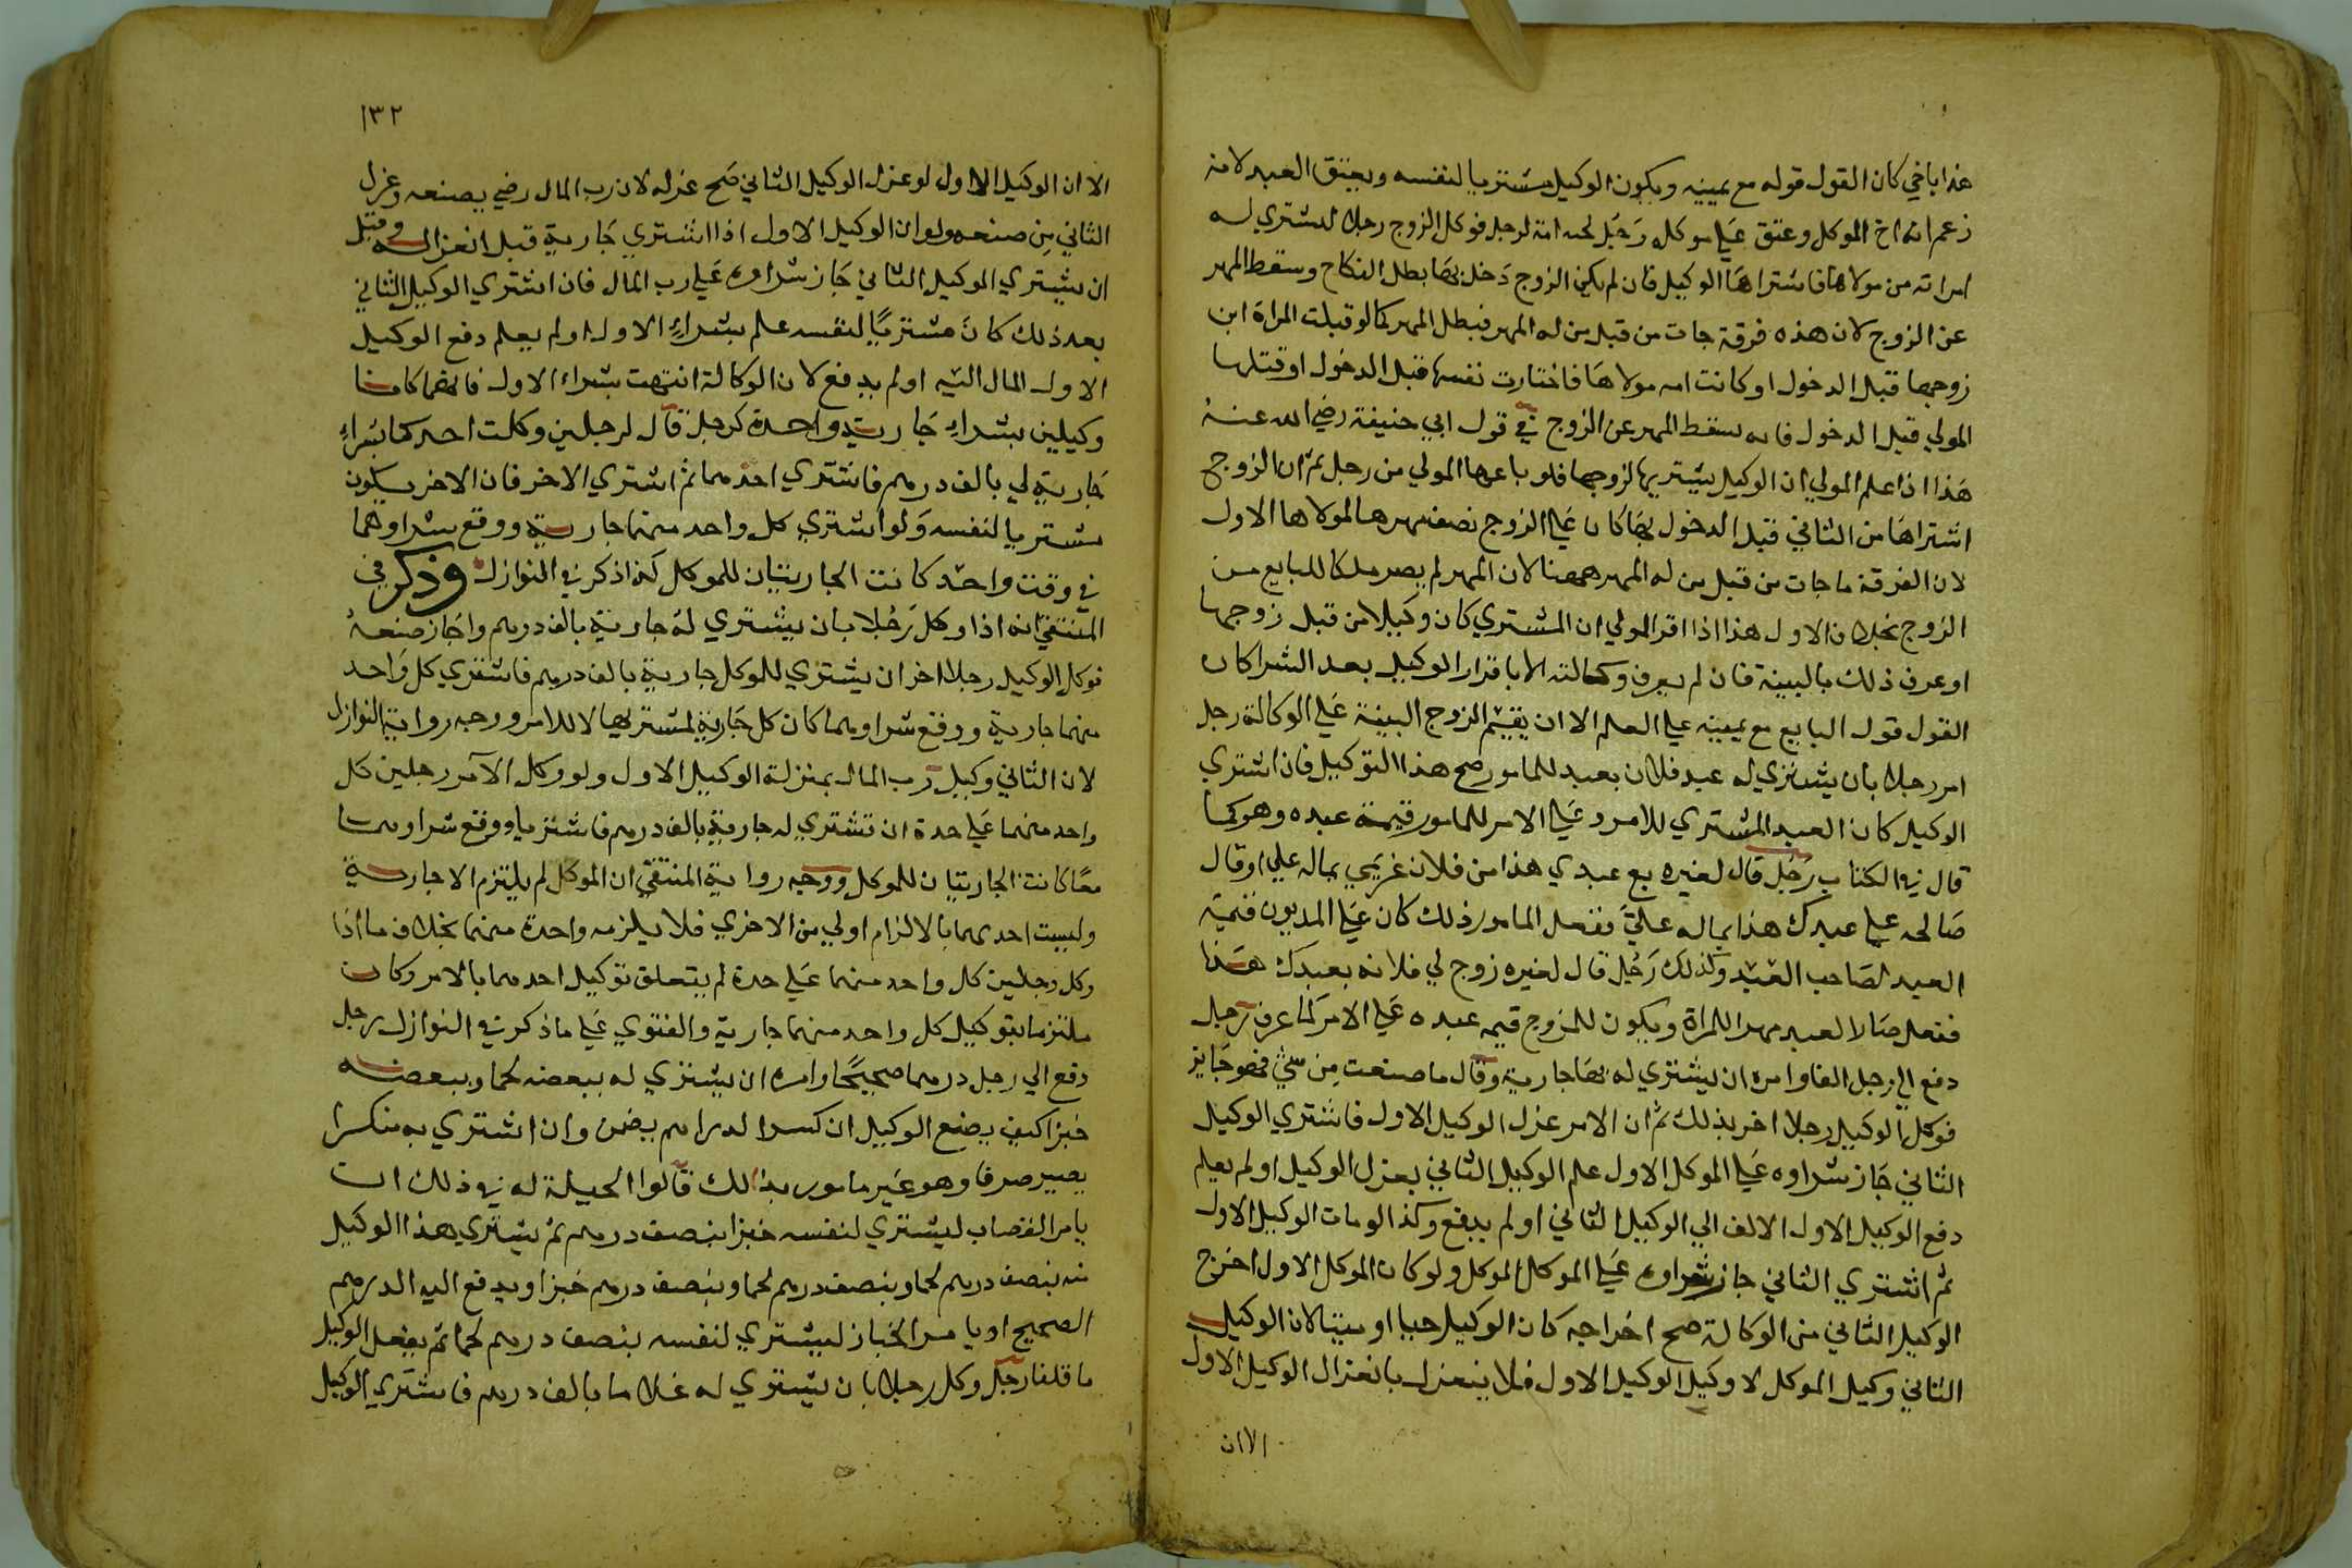 هذا باخي كان القول قوله مع يمينه ويكون الوكيل مشتريا لنفسه ويعتق العبد لانه
زعم انه اخ الموكل وعتق علي موكله رجل تحته امة لرجل فوكل الزوج رجلا ليشتري له
امراته من مولاها فاشتراها الوكيل فان لم يكن الزوج دخل بها بطل النكاح وسقط المهر
عن الزوج لان هذه فرقة جات من قبل من له المهر فبطل المهر كما لو قبلت المراة ابن
زوجها قبل الدخول او كانت امه مولاها فاختارت نفسها قبل الدخول او قتلها
المولي قبل الدخول فانه يسقط المهر عن الزوج في قول ابي حنيفة رضي الله عنه
هذا اذا علم المولي ان الوكيل يشتريها لزوجها فلو باعها المولي من رجل ثم ان الزوج
اشتراها من الثاني قبل الدخول بها كان علي الزوج نصف مهرها لمولاها الاول
لان الفرقة ما جات من قبل من له المهر ههنا لان المهر لم يصر ملكا للبايع من
الزوج بخلاف الاول هذا اذا اقر المولي ان المشتري كان وكيلا من قبل زوجها
او عرف ذلك بالبينة فان لم يعرف وكالته الا باقرار الوكيل بعد الشرا كان
القول قول البايع مع يمينه علي العلم الا ان يقيم الزوج البينة علي الوكالة رجل
امر رجلا بان يشتري له عبد فلان بعبد للمامور صح هذا التوكيل فان اشتري
الوكيل كان العبد المشتري للامر وعلي الامر للمامور قيمة عبده وهو كما
قال في الكتاب رجل قال لغيره بع عبدي هذا من فلان غريمي بماله علي او قال
صالحه علي عبدك هذا بماله علي ففعل المامور ذلك كان علي المديون قيمة
العبد لصاحب العبد وكذلك رجل قال لغيره زوج لي فلانه بعبدك هذا
ففعل صار العبد مهرا للمراة ويكون للمزوج قيمه عبده علي الامر لما عرف رجل
دفع الي رجل الفا وامره ان يشتري له بها جارية وقال ما صنعت من شي فهو جايز
فوكل الوكيل رجلا اخر بذلك ثم ان الامر عزل الوكيل الاول فاشتري الوكيل
الثاني جاز شراوه علي الموكل الاول علم الوكيل الثاني بعزل الوكيل او لم يعلم
دفع الوكيل الاول الالف الي الوكيل الثاني او لم يدفع وكذا لو مات الوكيل الاول
ثم اشتري الثاني جاز شراوه علي الموكل الموكل ولو كان الموكل الاول اخرج
الوكيل الثاني من الوكالة صح اخراجه كان الوكيل حيا او ميتا لان الوكيل
الثاني وكيل الموكل لا وكيل الوكيل الاول فلا ينعزل بانعزال الوكيل الاول
الا ان
١٣٢
الا ان الوكيل الاول لو عزل الوكيل الثاني صح عزله لان رب المال رضي بصنعه وعزل
الثاني من صنعه ولو ان الوكيل الاول اذا اشتري جارية قبل انعزاله وقبل
ان يشتري الوكيل الثاني جاز شراوه علي رب المال فان اشتري الوكيل الثاني
بعد ذلك كان مشتريا لنفسه علم بشراء الاول او لم يعلم دفع الوكيل
الاول المال اليه او لم يدفع لان الوكالة انتهت بشراء الاول فانهما كانا
وكيلين بشراء جارية واحدة كرجل قال لرجلين وكلت احدكما بشراء
جارية لي بالف درهم فاشتري احدهما ثم اشتري الاخر فان الاخر يكون
مشتريا لنفسه ولو اشتري كل واحد منهما جارية ووقع شراوهما
في وقت واحد كانت الجاريتان للموكل كذا ذكر في النوازل وذكر في
المنتقي انه اذا وكل رجلا بان يشتري له جارية بالف درهم واجاز صنعه
فوكل الوكيل رجلا اخر ان يشتري للموكل جارية بالف درهم فاشتري كل واحد
منهما جارية ووقع شراوهما كان كل جارية لمشتريها لا للامر ووجه رواية النوازل
لان الثاني وكيل رب المال بمنزلة الوكيل الاول ولو وكل الآمر رجلين كل
واحد منهما علي حدة ان تشتري له جارية بالف درهم فاشتريا ووقع شراوهما
معا كانت الجاريتان للموكل ووجه رواية المنتقي ان الموكل لم يلتزم الا جارية
وليست احديهما بالالزام اولي من الاخري فلا يلزمه واحدة منهما بخلاف ما اذا
وكل رجلين كل واحد منهما علي حدة لم يتعلق توكيل احدهما بالامر وكان
ملتزما بتوكيل كل واحد منهما جارية والفتوي علي ما ذكر في النوازل رجل
دفع الي رجل درهما صحيحا وامره ان يشتري له ببعضه لحما وببعضه
خبزا كيف يصنع الوكيل ان كسر الدراهم يضمن وان اشتري به منكسرا
يصير صرفا وهو غير مامور بذالك قالوا الحيلة له في ذلك ان
يامر القصاب ليشتري لنفسه خبزا بنصف درهم ثم يشتري هذا الوكيل
منه بنصف درهم لحما وبنصف درهم خبزا ويدفع اليه الدرهم
الصحيح او يامر الخباز ليشتري لنفسه بنصف درهم لحما ثم يفعل الوكيل
ما قلنا رجل وكل رجلا بان يشتري له غلاما بالف درهم فاشتري الوكيل